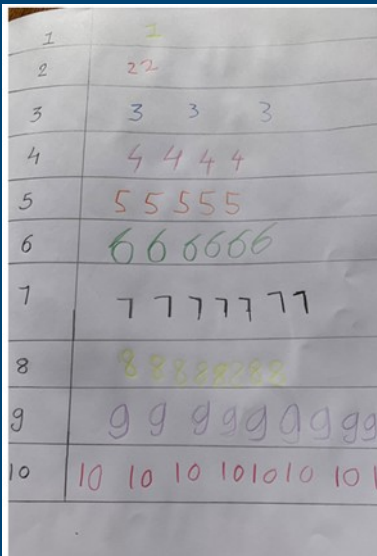 1 1
2 22
3 3 3 3
4 4 4 4 4
5 5 5 5 5 5
6 6 6 6 6 6 6
7 7 7 7 7 7 7 7
8 8 8 8 8 8 8 8 8
9 9 9 9 9 9 9 9 9 9
10 10 10 10 10 10 10 10